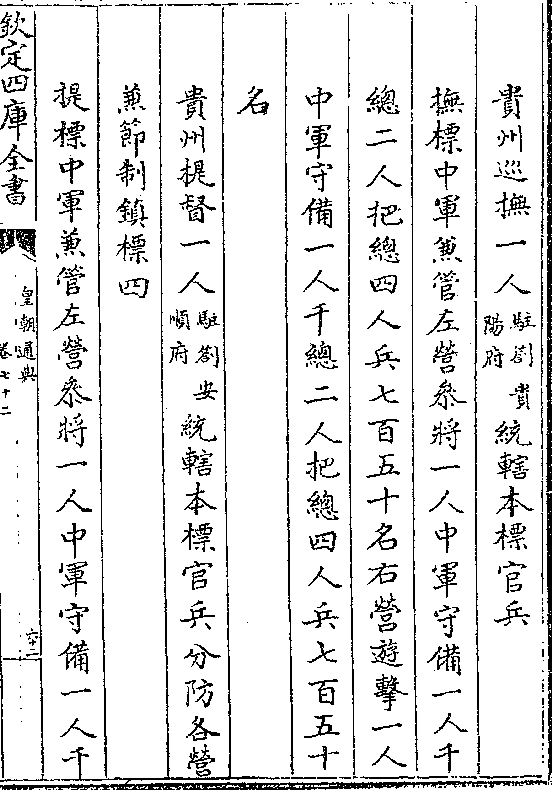 貴州巡撫一人駐劄貴陽府統轄本標官兵
撫標中軍兼管左營叅將一人中軍守備一人千
總二人把總四人兵七百五十名右營遊擊一人
中軍守備一人千總二人把總四人兵七百五十
名
貴州提督一人駐劄安順府統轄本標官兵分防各營
兼節制鎮標四
提標中軍兼管左營叅將一人中軍守備一人千
欽定四庫全書
皇朝通典
卷七十二